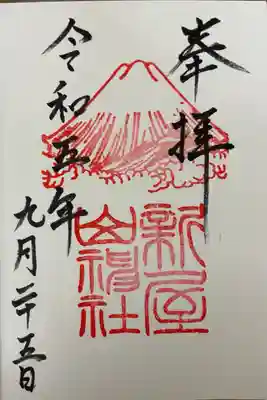 奉拝
新屋
山神社
令和五年
九月二十五日